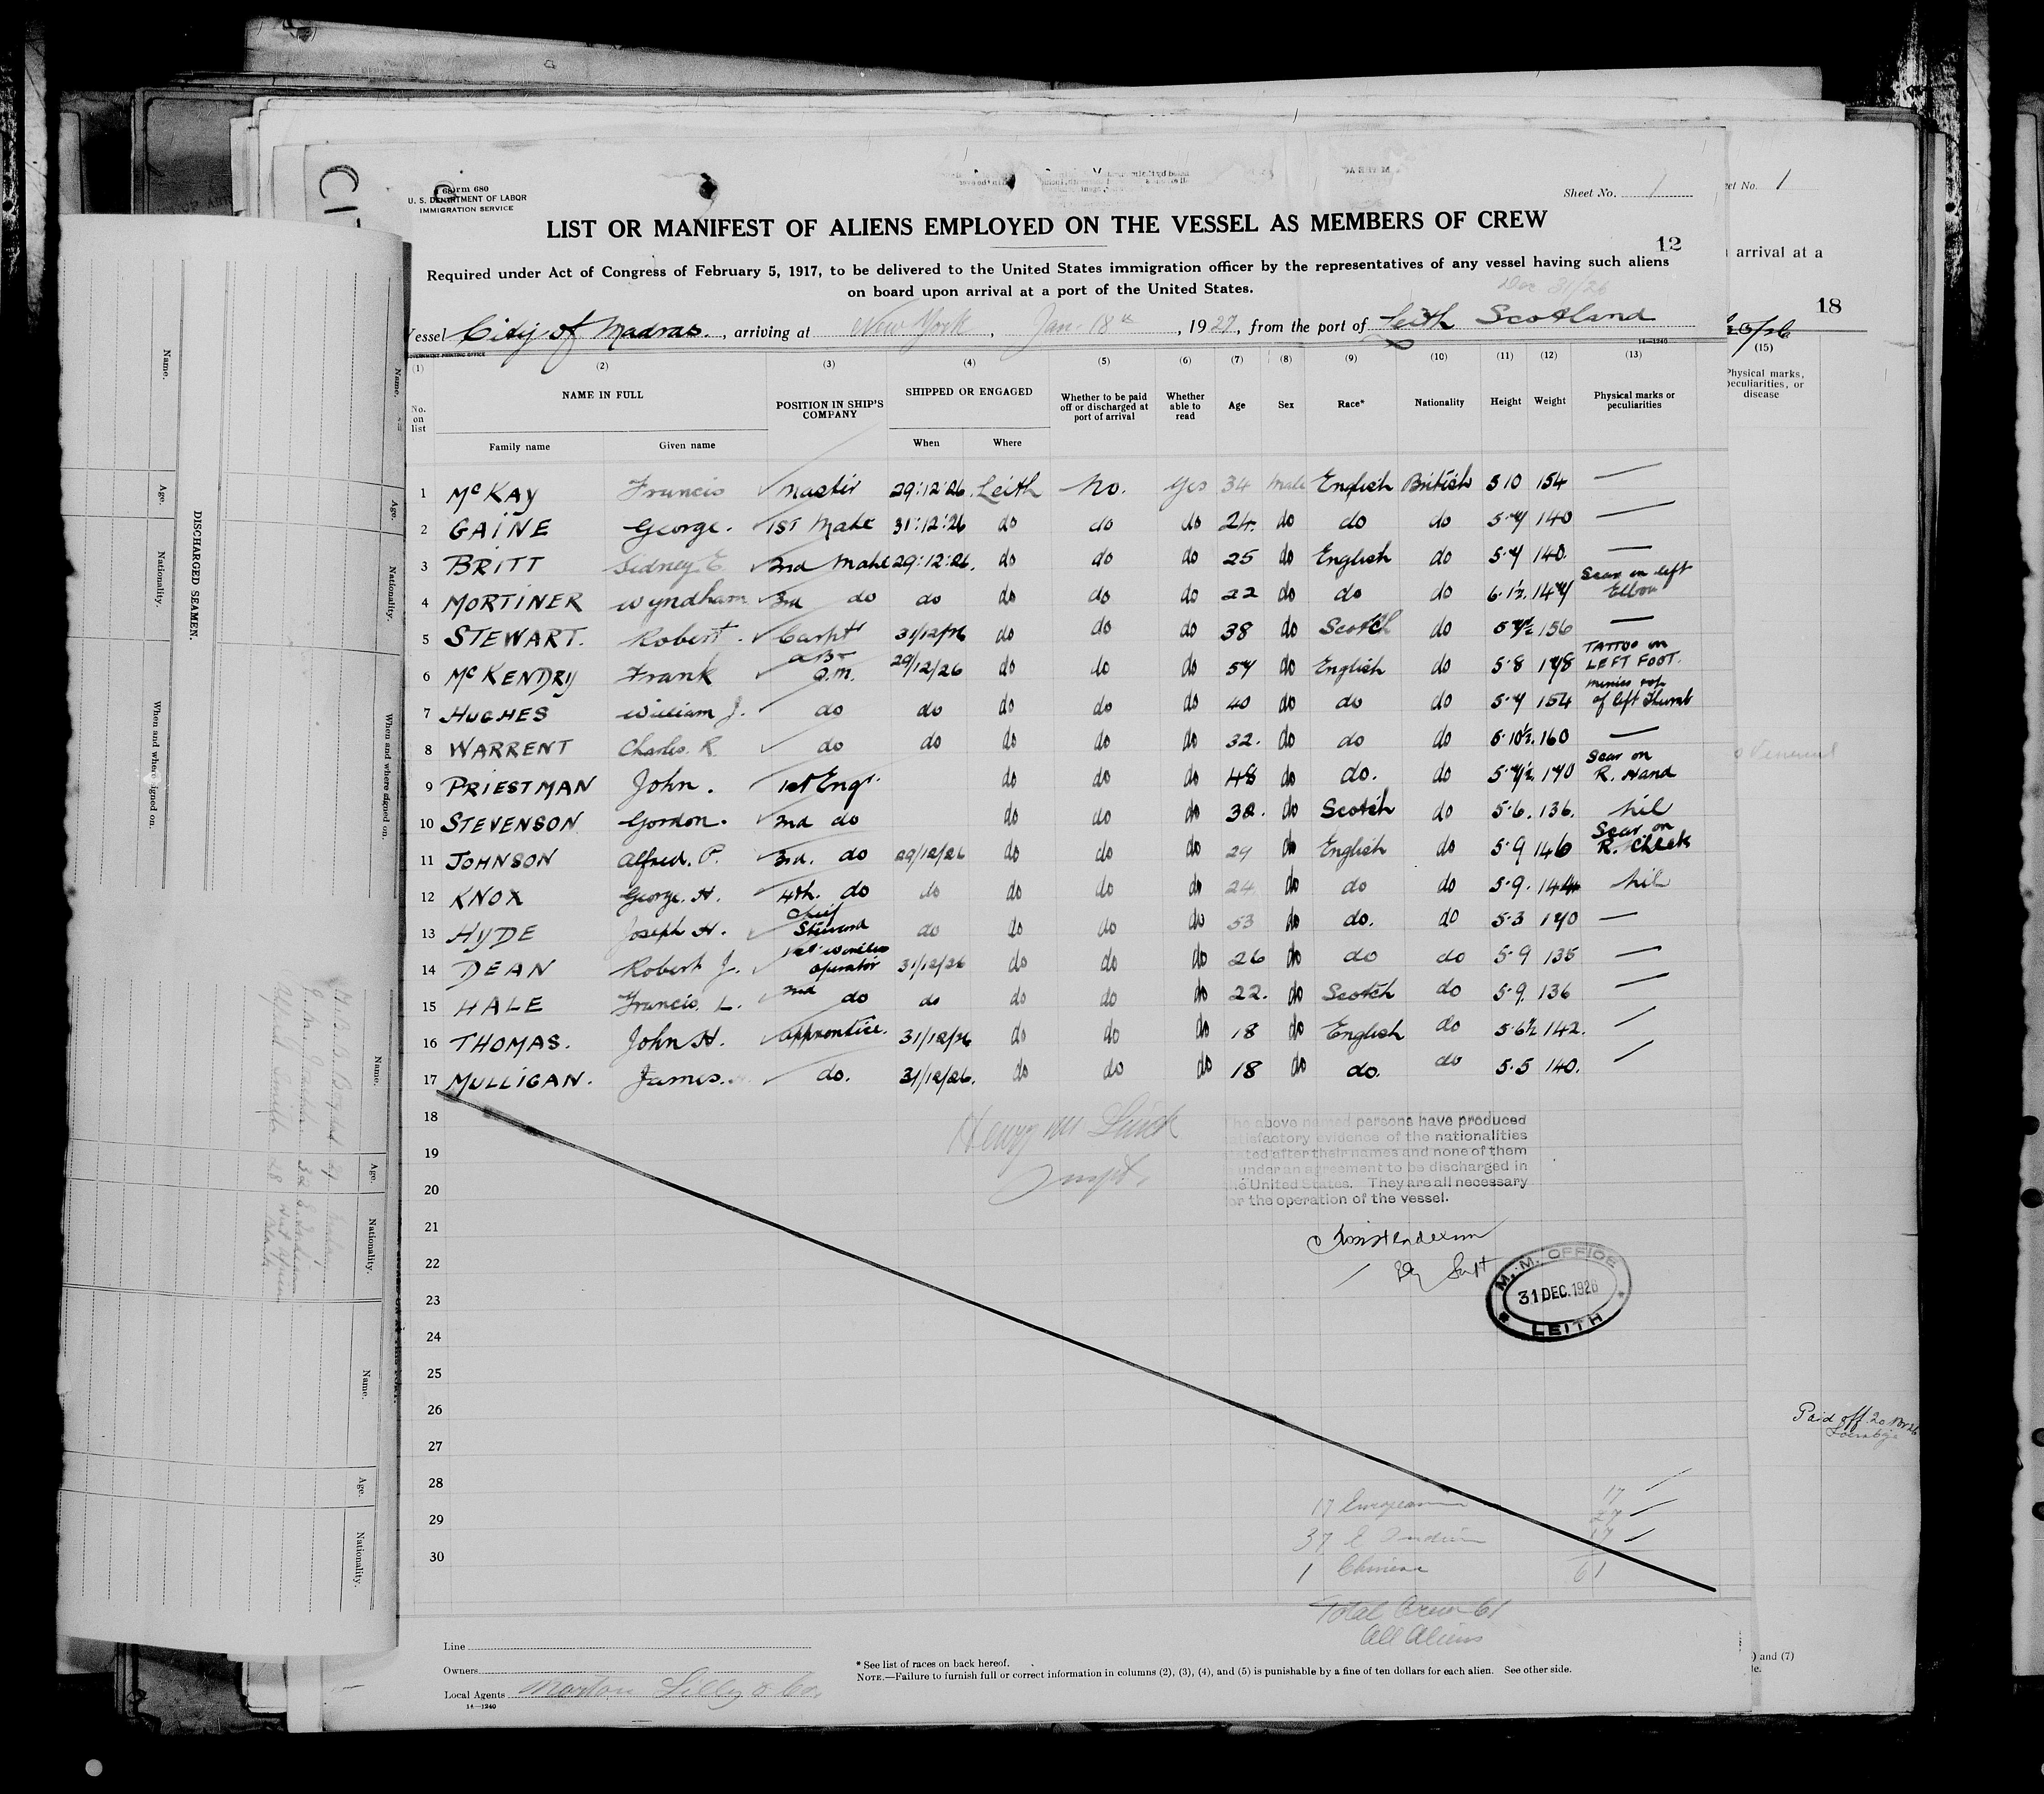 Form 680
U. S. DEPARTMENT OF LABOR
IMMIGRATION SERVICE
Sheet No. 1
LIST OR MANIFEST OF ALIENS EMPLOYED ON THE VESSEL AS MEMBERS OF CREW
12
Required under Act of Congress of February 5, 1917, to be delivered to the United States immigration officer by the representatives of any vessel having such aliens
on board upon arrival at a port of the United States.
Dec 31/26
Vessel City of Madras., arriving at New York, Jan. 18th, 1927, from the port of Leith Scotland
14—1240
(1) (2) (3) (4) (5) (6) (7) (8) (9) (10) (11) (12) (13)
No. on list NAME IN FULL POSITION IN SHIP'S COMPANY SHIPPED OR ENGAGED Whether to be paid off or discharged at port of arrival Whether able to read Age Sex Race* Nationality Height Weight Physical marks or peculiarities
Family name Given name When Where
1 McKAY Francis Master 29:12:26. Leith No. Yes 34 Male English British 5 10 154 —
2 GAINE George. 1ST Mate 31:12:26 do do do 24. do do do 5·7 140 —
3 BRITT Sidney E. 2nd Mate 29:12:26. do do do 25 do English do 5·7 140. —
4 MORTINER Wyndham 3rd do do do do do 22 do do do 6·1½. 147 Scar on left Elbow
5 STEWART. Robert. Carptr 31/12/26 do do do 38 do Scotch do 5 7½ 156 —
6 McKENDRY Frank Q.M. 29/12/26 do do do 57 do English do 5·8 178 TATTOO on LEFT FOOT.
7 HUGHES William J. do do do do do 40 do do do 5·7 154 minies top of left Thumb
8 WARRENT Charles. R do do do do do 32. do do do 5·10½. 160 —
9 PRIESTMAN John. 1st Engr. do do do 48 do do. do 5·7½. 170 Scar on R. Hand
10 STEVENSON Gordon. 2nd do do do do 32. do Scotch do 5·6. 136. nil
11 JOHNSON Alfred. P. 3rd. do 29/12/26 do do do 29 do English do 5·9 146 Scar on R. Cheek
12 KNOX George. H. 4th. do do do do do 24 do do do 5·9. 144 nil
13 HYDE Joseph H. Chief Steward do do do do 53 do do. do 5·3 170 —
14 DEAN Robert J. 1st Wireless Operator 31/12/26 do do do 26 do do do 5·9 135 —
15 HALE Francis. L. 2nd do do do do do 22. do Scotch do 5·9. 136 —
16 THOMAS. John H. apprentice. 31/12/26 do do do 18 do English do 5·6½ 142.
17 MULLIGAN. James. do. 31/12/26. do do do 18 do do. do 5·5 140.
18
19
20
21
22
23
24
25
26
27
28
29
30
The above named persons have produced
satisfactory evidence of the nationalities
stated after their names and none of them
under an agreement to be discharged in
the United States. They are all necessary
for the operation of the vessel.
M. M. OFFICE
31 DEC. 1926
LEITH
17 European
37 E Indian
1 Chinese
17
27
17
61
Total Crew 61
All Aliens
Line
Owners
Local Agents Norton Lilly & Co.
14—1240
* See list of races on back hereof.
NOTE.—Failure to furnish full or correct information in columns (2), (3), (4), and (5) is punishable by a fine of ten dollars for each alien. See other side.
1
arrival at a
18
(15)
Physical marks, peculiarities, or disease
Paid off
) and (7)
DISCHARGED SEAMEN.
Name.
Age.
Nationality.
When and where signed on.
Name.
Age.
Nationality.
When and where signed on.
Name.
Age.
Nationality.
Name.
Age.
Nationality.